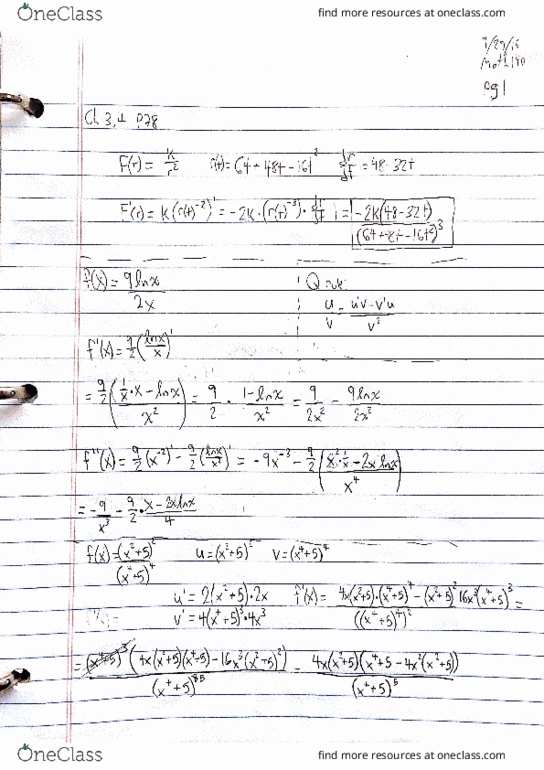 OneClass find more resources at oneclass.com
pg 1
Ch 3.
F(r) = k/r² r(t) = 64 + 48t - 16t² dr/dt = 48 - 32t
F'(r) = k(r(t)⁻²)' = -2k·(r(t)⁻³)· = -2k(48-32t)/(64+48t-16t²)³
f(x) = 9lnx/2x Q rule:
u/v = u'v - v'u/v²
f'(x) = 9/2 (lnx/x)'
= 9/2 (1/x · x - lnx/x²) = 9/2 · 1-lnx/x² = 9/2x² - 9lnx/2x²
f''(x) = 9/2 (x⁻²)' - 9/2 (lnx/x²)' = -9x⁻³ - 9/2 (x²·1/x - 2x lnx/x⁴)
= -9/x³ - 9/2 · x - 2xlnx/4
f(x) = (x²+5)²/(x⁴+5)⁴ u = (x²+5)² v = (x⁴+5)⁴
u' = 2(x²+5)·2x f'(x) = 4x(x²+5)·(x⁴+5)⁴ - (x²+5)² 16x³(x⁴+5)³/((x⁴+5)⁴)² =
v' = 4(x⁴+5)³·4x³
= (x⁴+5)³(4x(x²+5)(x⁴+5) - 16x³(x²+5)²)/(x⁴+5)⁸⁵ = 4x(x²+5)(x⁴+5 - 4x²(x²+5))/(x⁴+5)⁵
OneClass find more resources at oneclass.com